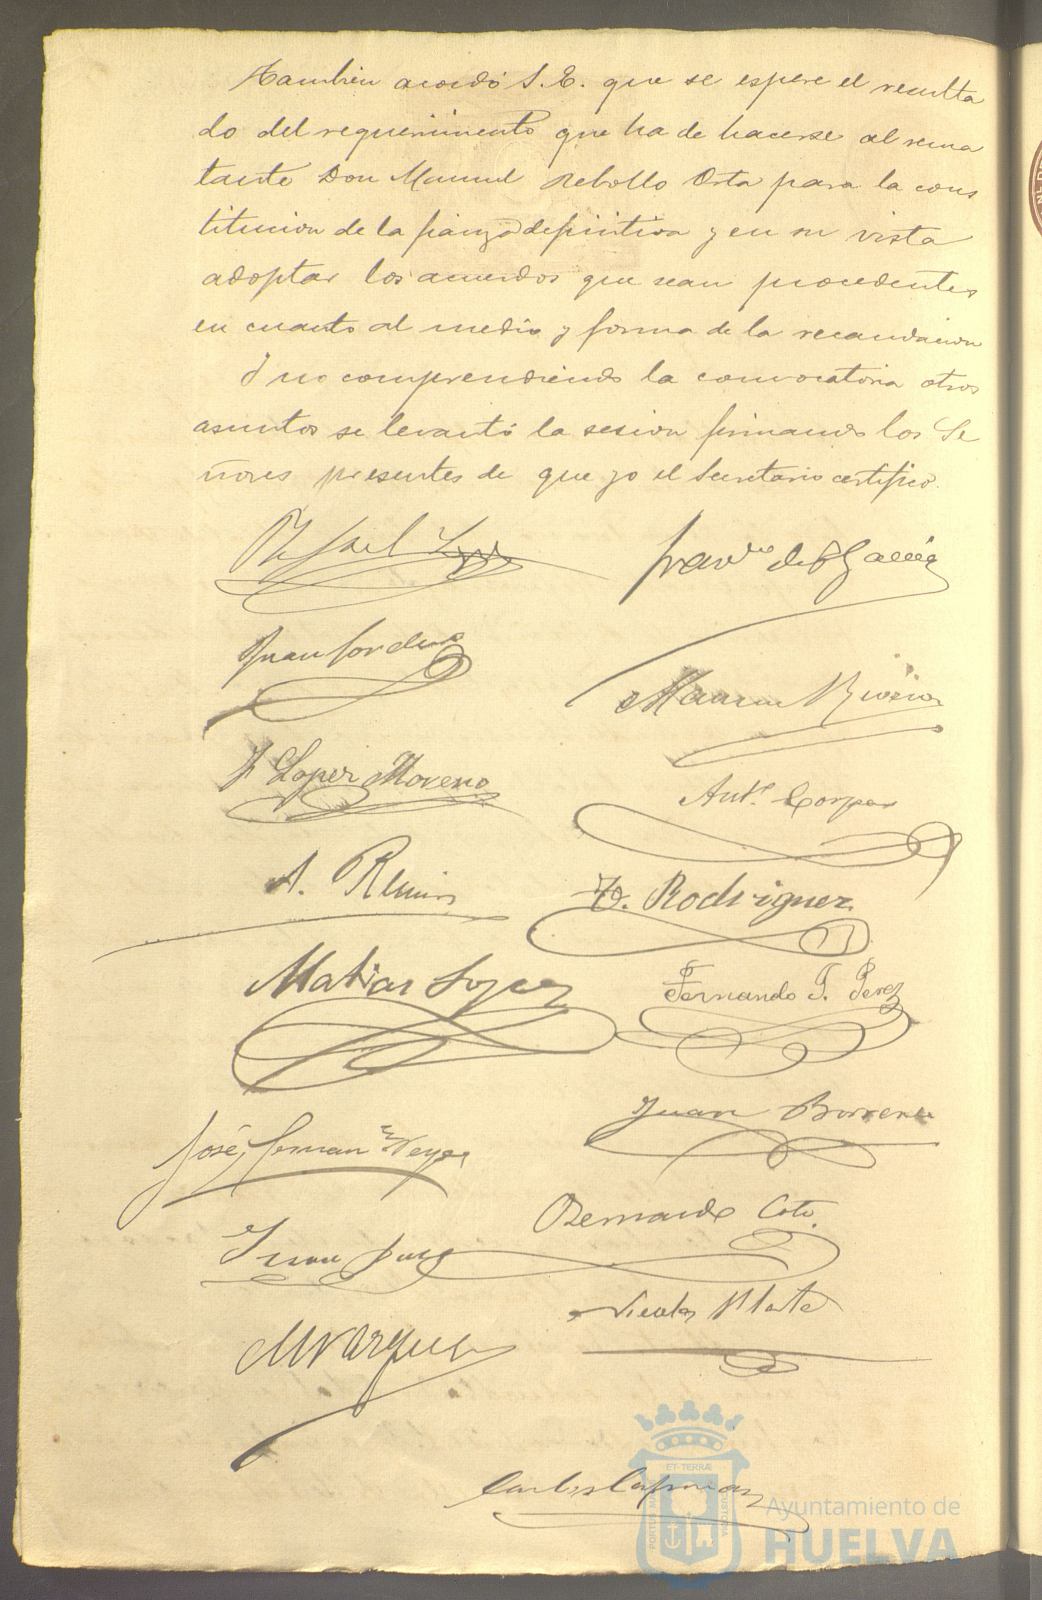 Tambien acordó S.E. que se espere el resulta
do del requerimiento que ha de hacerse al rema
tante Don Manuel Rebollo Orta para la cons
titucion de la fianza definitiva y en su vista
adoptar los acuerdos que sean procedentes
en cuanto al medio y forma de la recaudacion
Y no comprendiendo la convocatoria otros
asuntos se levantó la sesion firmando los Se
ñores presentes de que yo el Secretario certifico.
Rafael
Garcia
Juan
J Lopez Moreno
Antº.
A.
Rodriguez
Matias Lopez
Fernando T. Perez
Juan Borrero
José
Bernardo Coto.
Juan
Nicolas
Carlos
ET TERRÆ
PORTUS MARIS
CUSTODIA
Ayuntamiento de
HUELVA